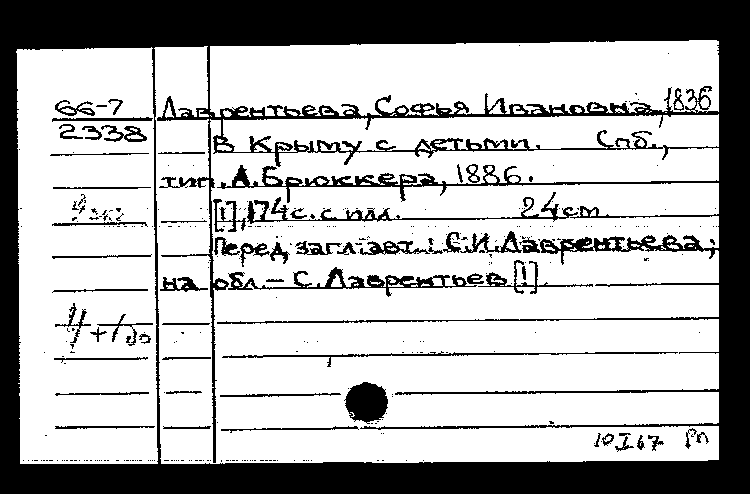 66-7 Лаврентьева, Софья Ивановна, 1836
2338 В Крыму с детьми. Спб.,
тип. А. Брюккера, 1886.
[1], 174 с. с илл. 24 cm.
Перед загл. авт.: С.И. Лаврентьева;
на обл. – С. Лаврентьев [!]
10.I.67